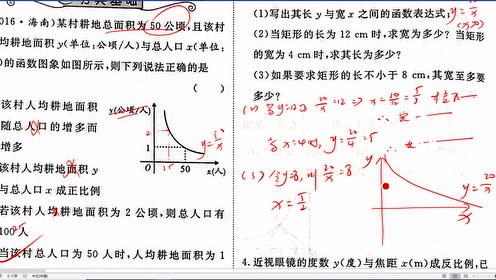 016·海南)某村耕地总面积为50公顷,且该村
均耕地面积y(单位:公顷/人)与总人口x(单位:
)的函数图象如图所示,则下列说法正确的是
( )
该村人均耕地面积
随总人口的增多而
增多
该村人均耕地面积y
与总人口x成正比例
若该村人均耕地面积为2公顷,则总人口有
100人
当该村总人口为50人时,人均耕地面积为1
y(公顷/人)
2
1
O
25
50
x(人)
(1)写出其长y与宽x之间的函数表达式;
(2)当矩形的长为12 cm时,求宽为多少?当矩形
的宽为4 cm时,求其长为多少?
(3)如果要求矩形的长不小于8 cm,其宽至多要
多少?
当x=4时, y=20/4=5
(3) 令y=8, 则 20/x=8
x=5/2
y
y=20/x
x
4.近视眼镜的度数y(度)与焦距x(m)成反比例,已